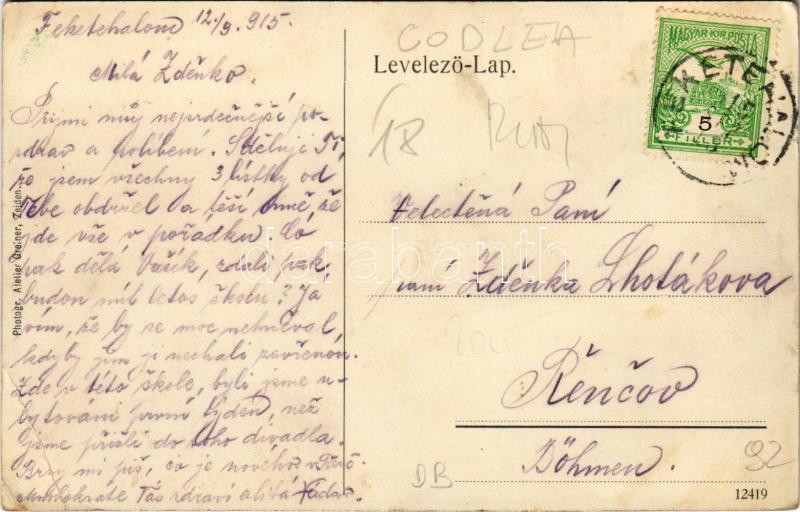 Feketehalom 12./9. 915.
Milá Zděnko.
Přijmi můj nejsrdečnější po-
zdrav a políbení. Sděluji Ti,
že jsem všechny 3 lístky od
Tebe obdržel a těší mně že
jde vše v pořádku. Co
pak dělá Vašík, zdali pak
budou mít letos školu? Já
vím, že by se moc nehněval,
kdyby jim ji nechali zavřenou.
Zde v této škole, byli jsme u-
bytováni první týden, než
jsme přišli do toho divadla.
Brzy mi piš, co je nového v
Mnohokráte Vás zdraví a líbá
Photogr. Atelier Greiner, Zeiden.
CODLEA
Levelező-Lap.
18
MAGYAR KIR. POSTA
5
FILLÉR
FEKETEHALOM
Velectěná Paní
paní Zděnka Lhotáková
200
Řenčov
Böhmen.
DB
92
12419
darabanth